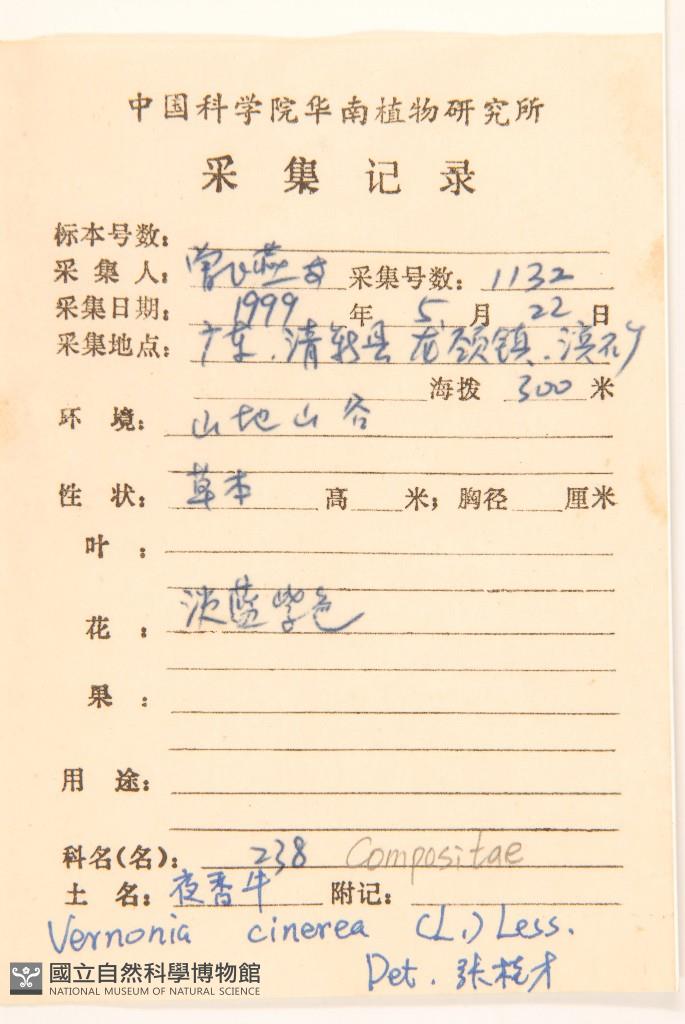 中国科学院华南植物研究所
采集记录
标本号数：
采集人：曾 采集号数：1132
采集日期：1999年5月22日
采集地点：广东、清新县龙颈镇、
海拨 300 米
环境：山地山谷
性状：草本 高 米；胸径 厘米
叶：
花：淡蓝紫色
果：
用途：
科名(名)：238 Compositae
土名：夜香牛 附记：
Vernonia cinerea (L.) Less.
Det. 张桂才
國立自然科學博物館
NATIONAL MUSEUM OF NATURAL SCIENCE